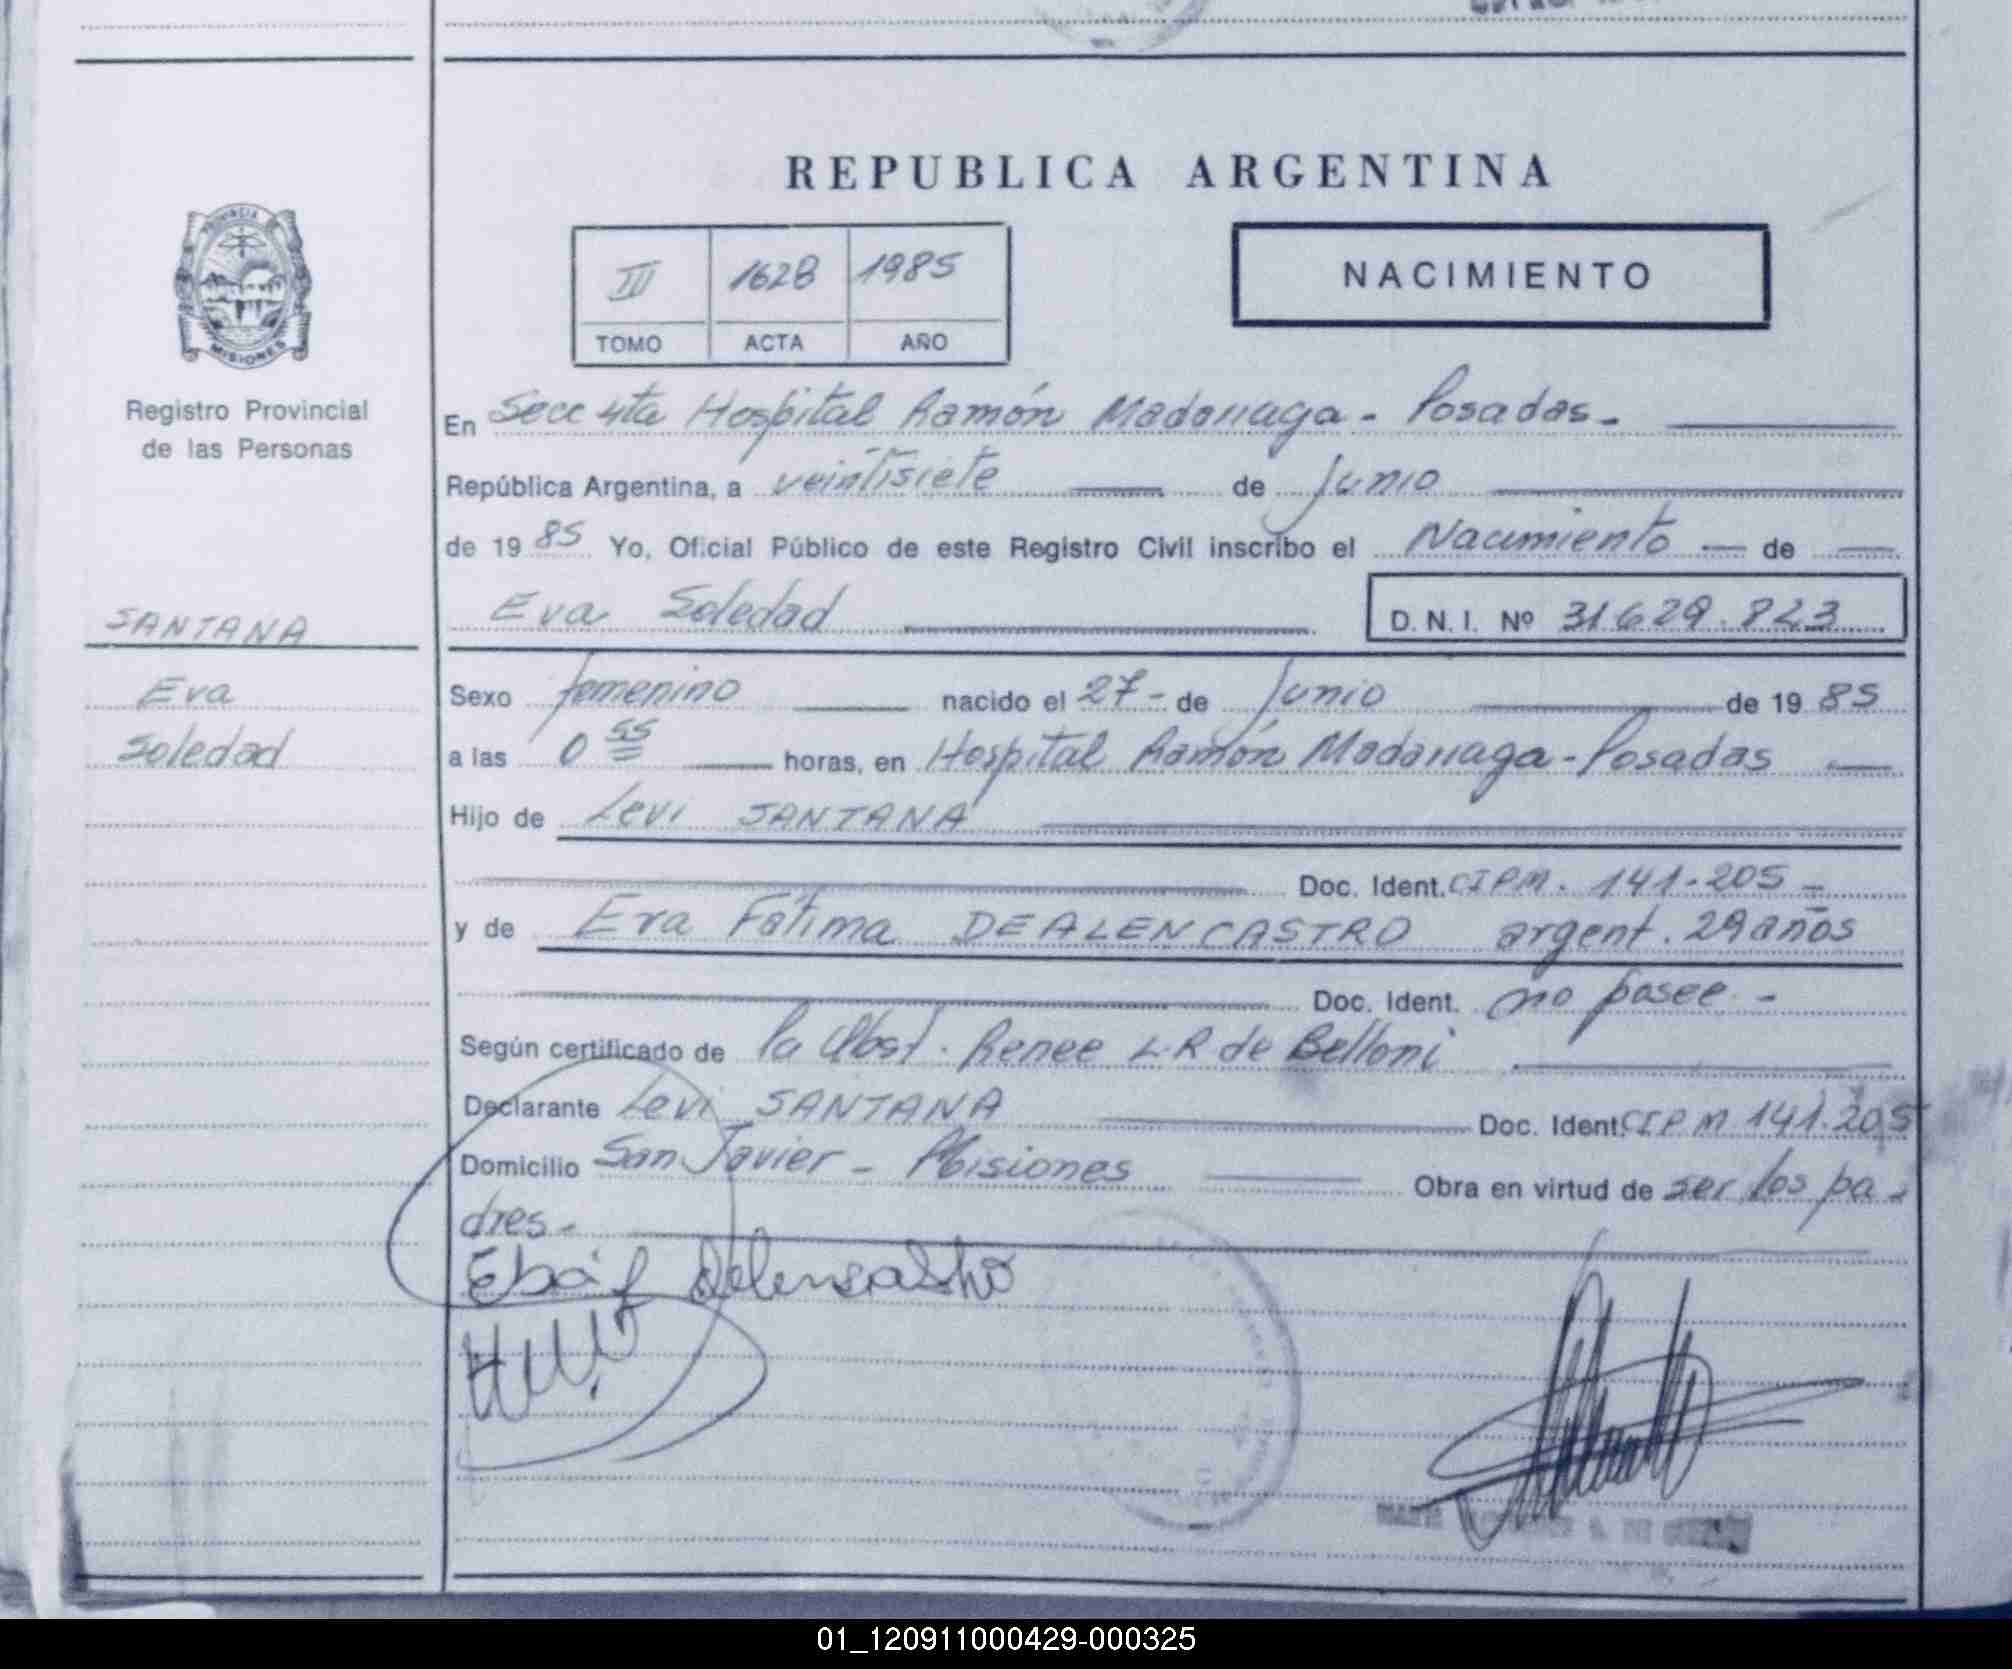 REPUBLICA ARGENTINA
III 1628 1985
TOMO ACTA AÑO
NACIMIENTO
PROVINCIA
MISIONES
Registro Provincial
de las Personas
En Secc 4ta Hospital Ramón Madariaga - Posadas -
República Argentina, a veintisiete de junio
de 19 85 Yo, Oficial Público de este Registro Civil inscribo el Nacimiento de
Eva Soledad D. N. I. Nº 31629.823
SANTANA
Eva
Soledad
Sexo femenino nacido el 27 - de junio de 19 85
a las 0 55 horas, en Hospital Ramón Madariaga - Posadas
Hijo de Levi SANTANA
Doc. Ident. CIPM. 141.205 -
y de Eva Fátima DEALENCASTRO argent. 29 años
Doc. Ident. no posee -
Según certificado de la Obst. Renee L.R de Belloni
Declarante Levi SANTANA Doc. Ident. CIPM 141.205
Domicilio San Javier - Misiones Obra en virtud de ser los pa -
dres -
01_120911000429-000325